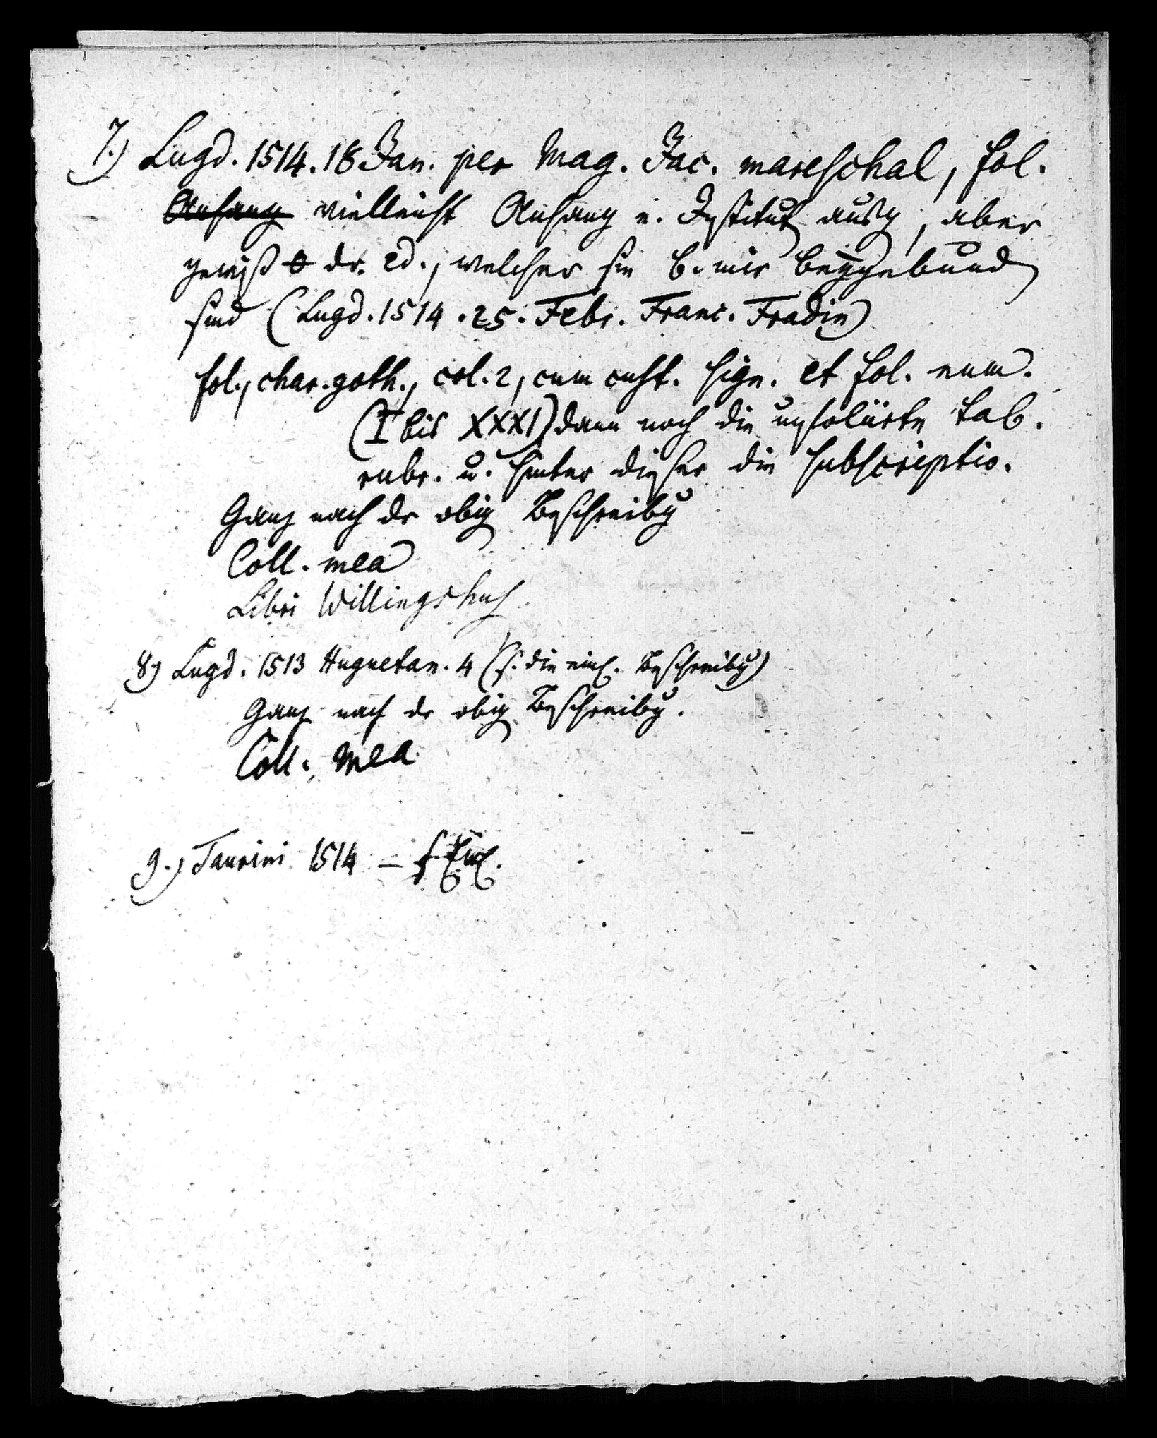 7.) Lugd. 1514. 18 Jan. per Mag. Jac. mareschal, fol.
Anhang vielleicht Anhang e. Institut ausg, aber
gewiß dr. ed., welcher sie b. mir beygebund
sind (Lugd. 1514. 25. Febr. Franc. Fradin)
fol., char. goth., col. 2, cum cust. sign. et fol. num.
(I bis XXXI) dann noch die unfoliirte tab.
rubr. u. hinter dieser die subscriptio.
Ganz nach dr obig Beschreibg
Coll. mea
Libri
8) Lugd. 1513 Huguetan. 4 (s. die einz. Beschreibg)
Ganz nach dr obig Beschreibg.
Coll. mea
9.) Taurini 1514 —